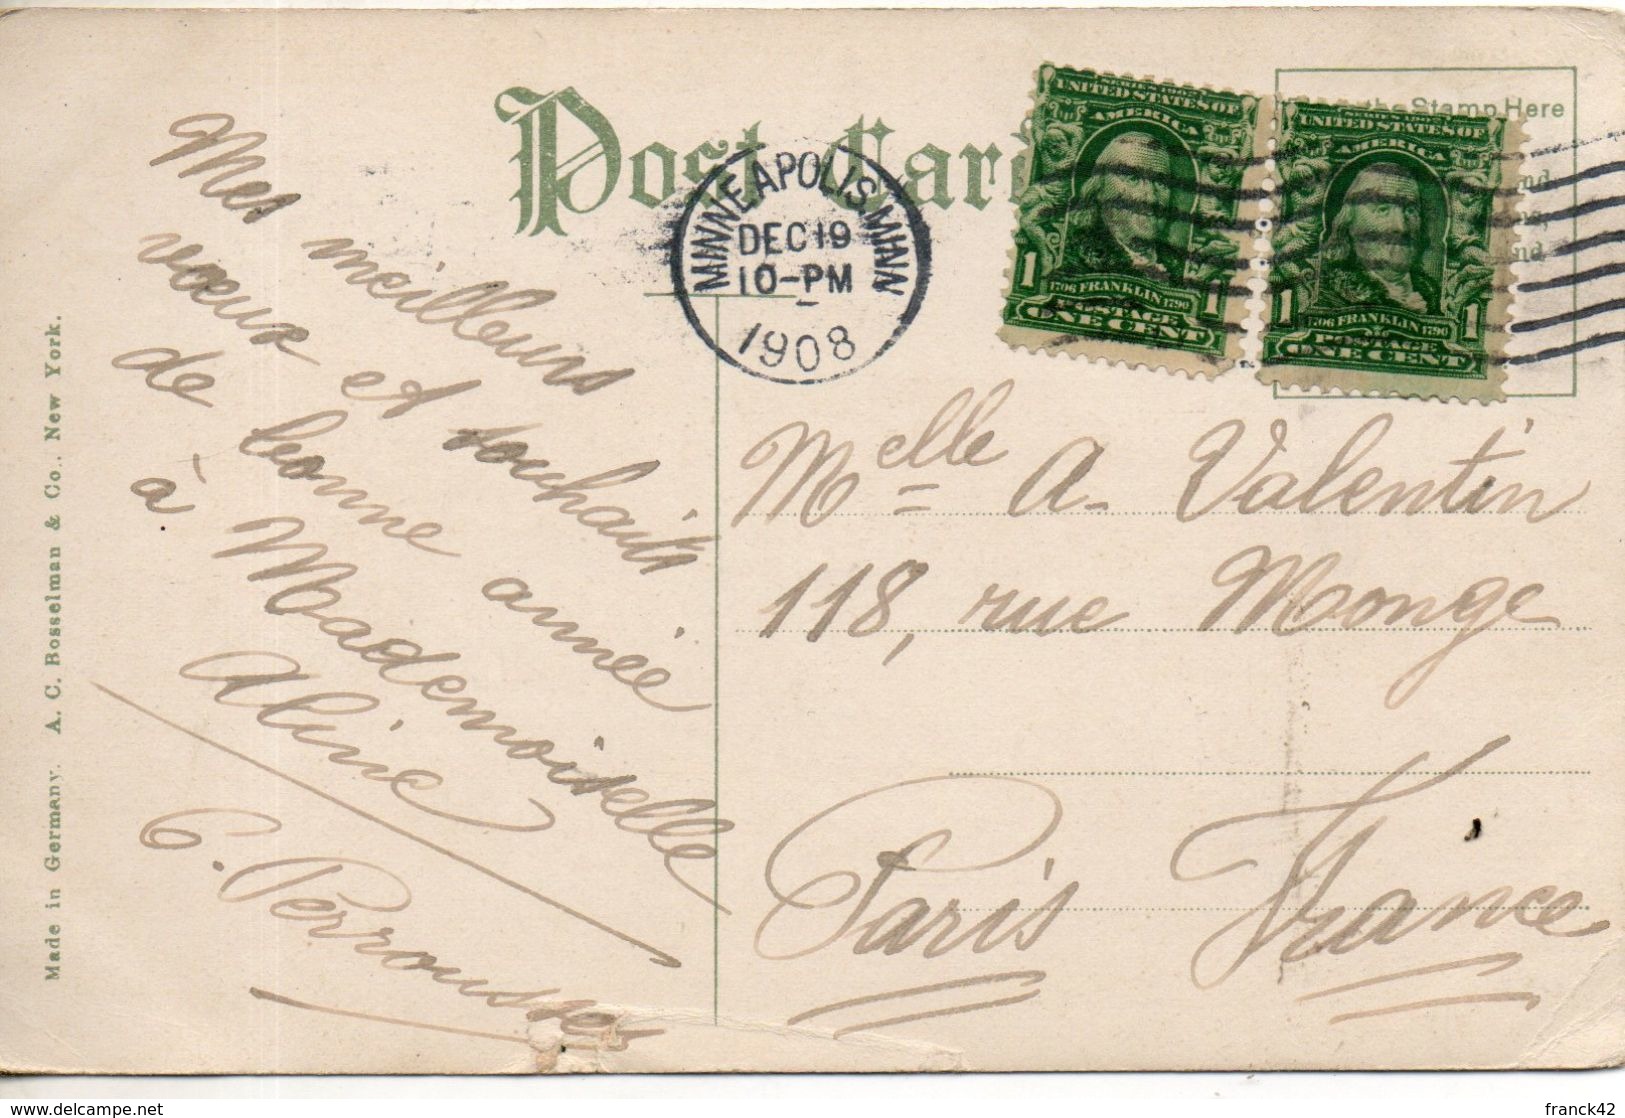 Post Card
the Stamp Here
MINNEAPOLIS, MINN.
DEC 19
10-PM
1908
SERIES 1902
UNITED STATES OF
AMERICA
1706 FRANKLIN 1790
1 1
POSTAGE
ONE CENT
UNITED STATES OF
AMERICA
1706 FRANKLIN 1790
1 1
POSTAGE
ONE CENT
Mes meilleurs
vœux et souhaits
de bonne année
à Mademoiselle
Aline
C. Perrousset
Melle A. Valentin
118, rue Monge
Paris France
Made in Germany. A. C. Bosselman & Co., New York.
delcampe.net
franck42